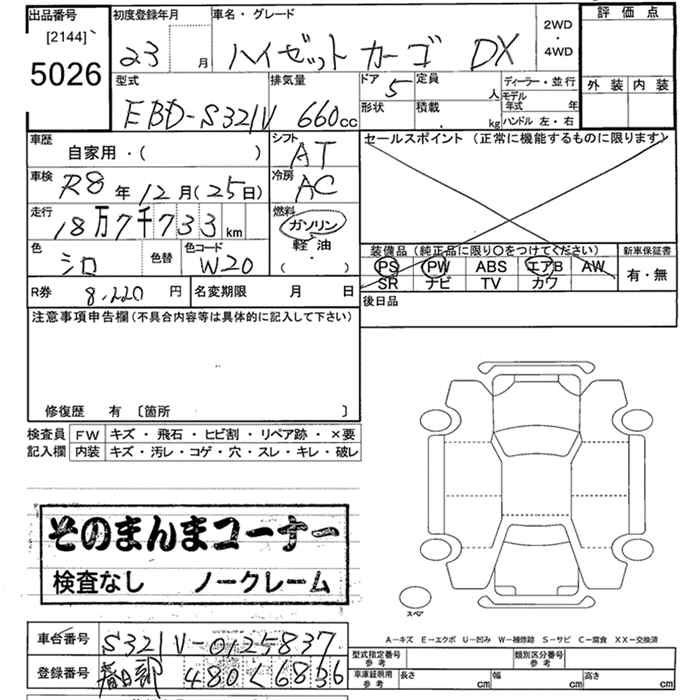 出品番号 初度登録年月 車名・グレード 2WD・4WD 評価点
[2144]
5026
23 月 ハイゼット カーゴ DX
外装 内装
型式 排気量 ドア 定員 人 ディーラー・並行
EBD-S321V 660cc 5
形状 積載 kg モデル年式 年
ハンドル 左・右
車歴 自家用・( ) シフト AT セールスポイント (正常に機能するものに限ります)
車検 R8年12月(25日) 冷房 AC
走行 18万7千733km 燃料 ガソリン 軽油 ( ・ )
色 シロ 色替 色コード W20
装備品(純正品に限り○をつけてください) 新車保証書
PS PW ABS エアB AW 有・無
SR ナビ TV カワ
R券 8,220円 名変期限 月 日 後日品
注意事項申告欄(不具合内容等は具体的に記入して下さい)
修復歴 有 〔箇所 〕
検査員 FW キズ・飛石・ヒビ割・リペア跡・×要
記入欄 内装 キズ・汚レ・コゲ・穴・スレ・キレ・破レ
そのまんまコーナー
検査なし ノークレーム
スペア
A-キズ E-エクボ U-凹み W-補修跡 S-サビ C-腐食 XX-交換済
車台番号 S321V-0125837
登録番号 春日部 480 く 6836
型式指定番号 参考 類別区分番号 参考
車庫証明用 参考 長さ cm 幅 cm 高さ cm